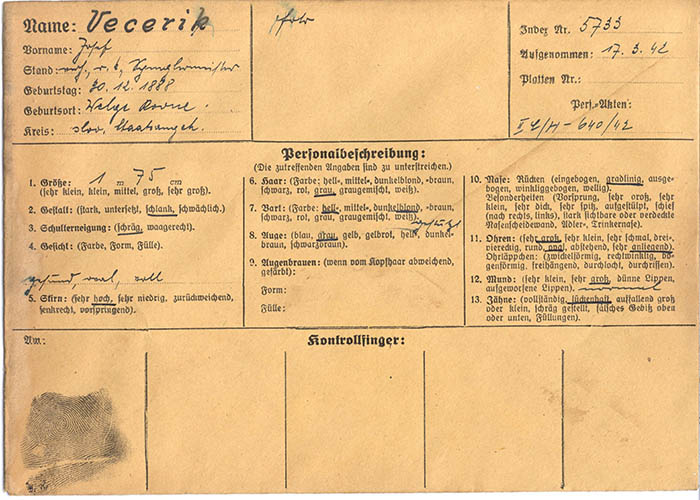 Name: Vecerik
Vorname: Josef
Stand: verh., r. k., Spenglermeister
Geburtstag: 30.12.1888
Geburtsort: Welge Rovne.
Kreis: slov. Staatsangeh.
Index Nr. 5733
Aufgenommen: 17.3.42
Platten Nr.:
Pers.-Akten:
640/42
Personalbeschreibung:
(Die zutreffenden Angaben sind zu unterstreichen.)
1. Größe: 1 m 75 cm
(sehr klein, klein, mittel, groß, sehr groß).
2. Gestalt: (stark, untersetzt, schlank, schwächlich.)
3. Schulterneigung: (schräg, waagerecht).
4. Gesicht: (Farbe, Form, Fülle).
gesund, oval, voll
5. Stirn: (sehr hoch, sehr niedrig, zurückweichend,
senkrecht, vorspringend).
6. Haar: (Farbe: hell-, mittel-, dunkelblond, -braun,
schwarz, rot, grau, graugemischt, weiß).
7. Bart: (Farbe: hell-, mittel-, dunkelblond, -braun,
schwarz, rot, grau, graugemischt, weiß).
gestutzt
8. Auge: (blau, grau, gelb, gelbrot, hell-, dunkel-
braun, schwarzbraun).
9. Augenbrauen: (wenn vom Kopfhaar abweichend,
gefärbt):
Form:
Fülle:
10. Nase: Rücken (eingebogen, gradlinig, ausge-
bogen, winkliggebogen, wellig).
Besonderheiten (Vorsprung, sehr groß, sehr
klein, sehr dick, sehr spitz, aufgestülpt, schief
(nach rechts, links), stark sichtbare oder verdeckte
Nasenscheidewand, Adler-, Trinkernase).
11. Ohren: (sehr groß, sehr klein, sehr schmal, drei-,
viereckig, rund, oval, abstehend, sehr anliegend).
Ohrläppchen: (zwickelförmig, rechtwinklig, bo-
genförmig, freihängend, durchlocht, durchrissen).
12. Mund: (sehr klein, sehr groß, dünne Lippen,
aufgeworfene Lippen). normal
13. Zähne: (vollständig, lückenhaft, auffallend groß
oder klein, schräg gestellt, falsches Gebiß oben
oder unten, Füllungen).
Kontrollfinger: